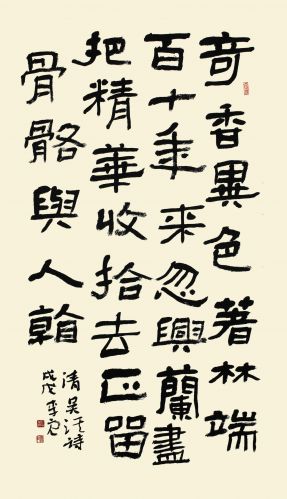 奇香異色著林端
百十年来忽興蘭盡
把精華收拾去正留
骨骼與人翰
清吴淇诗
戊戌李